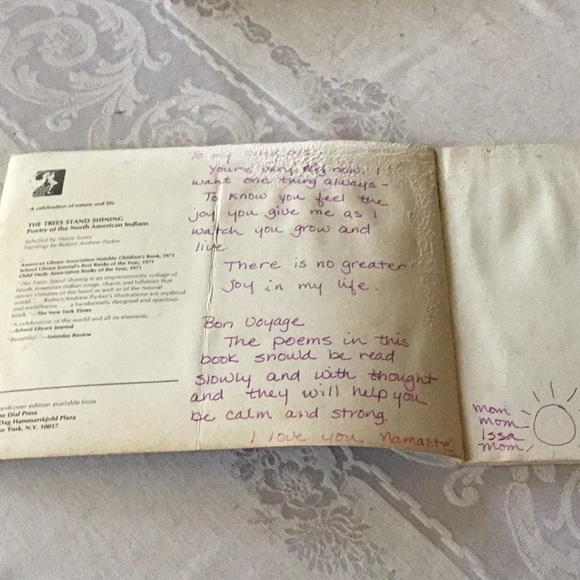 A celebration of nature and life
THE TREES STAND SHINING
Poetry of the North American Indians
Selected by Hettie Jones
Paintings by Robert Andrew Parker
American Library Association Notable Children's Book, 1971
School Library Journal's Best Books of the Year, 1971
Child Study Association Books of the Year, 1971
"The Trees Stand Shining is an impressionistic collage of
North American Indian songs, chants and lullabies that
mirror climates of the heart as well as of the natural
world ... Robert Andrew Parker's illustrations are mythical
and mettlesome ... a handsomely designed and spacious
book."—The New York Times
"A celebration of the world and all its elements ..."
—School Library Journal
"Beautiful."—Saturday Review
hardcover edition available from
The Dial Press
Dag Hammarskjold Plaza
New York, N.Y. 10017
To my
You're very now. I
want one thing always -
To know you feel the
joy you give me as I
watch you grow and
live.
There is no greater
joy in my life.
Bon Voyage
The poems in this
book should be read
slowly and with thought
and they will help you
be calm and strong.
I love you Namaste
mom
mom
Issa
mom